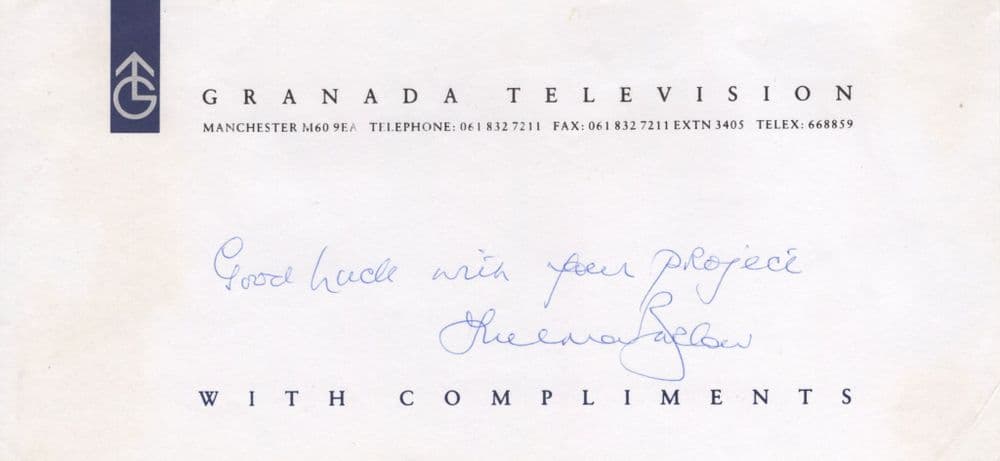 GRANADA TELEVISION
MANCHESTER M60 9EA TELEPHONE: 061 832 7211 FAX: 061 832 7211 EXTN 3405 TELEX: 668859
Good luck with your project
Thelma Barlow
WITH COMPLIMENTS